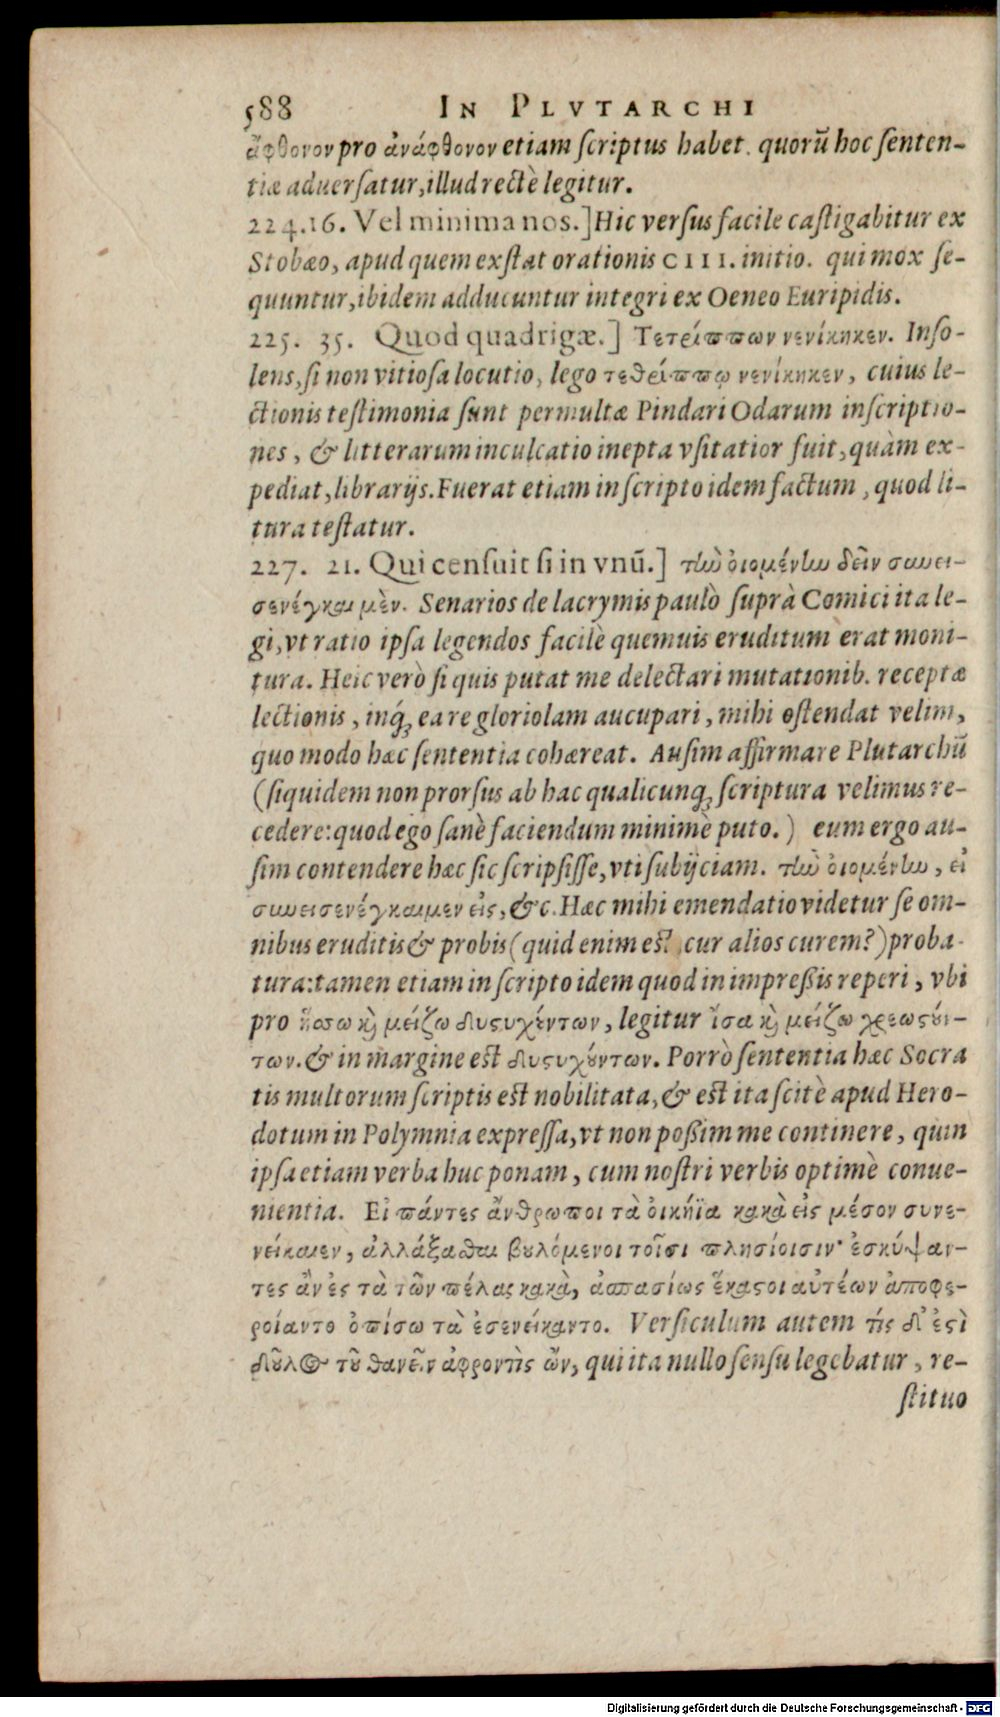 588 IN PLVTARCHI
ἄφθονον pro ἀνάφθονον etiam ſcriptus habet. quorū hoc ſenten-
tiæ aduerſatur, illud rectè legitur.
224.16. Vel minima nos.] Hic verſus facile caſtigabitur ex
Stobæo, apud quem exſtat orationis CIII. initio. qui mox ſe-
quuntur, ibidem adducuntur integri ex Oeneo Euripidis.
225. 35. Quod quadrigæ.] Τετρίππων νενίκηκεν. Inſo-
lens, ſi non vitioſa locutio, lego τεθρίππῳ νενίκηκεν, cuius le-
ctionis teſtimonia ſunt permultæ Pindari Odarum inſcriptio-
nes, & litterarum inculcatio inepta vſitatior fuit, quàm ex-
pediat, librarijs. Fuerat etiam in ſcripto idem factum, quod li-
tura teſtatur.
227. 21. Qui cenſuit ſi in vnū.] τὴν ὀιομένην δεῖν συνει-
σενέγκαι μὲν. Senarios de lacrymis paulò ſuprà Comici ita le-
gi, vt ratio ipſa legendos facilè quemuis eruditum erat moni-
tura. Heic verò ſi quis putat me delectari mutationib. receptæ
lectionis, inq́; ea re gloriolam aucupari, mihi oſtendat velim,
quo modo hæc ſententia cohæreat. Auſim affirmare Plutarchū
(ſiquidem non prorſus ab hac qualicunq; ſcriptura velimus re-
cedere: quod ego ſanè faciendum minimè puto.) eum ergo au-
ſim contendere hæc ſic ſcripſiſſe, vti ſubijciam. τὴν ὀιομένην, εἰ
συνεισενέγκαιμεν εἰς, &c. Hæc mihi emendatio videtur ſe om-
nibus eruditis & probis (quid enim est cur alios curem?) proba-
tura: tamen etiam in ſcripto idem quod in impreßis reperi, vbi
pro ἥσσω καὶ μείζω δυςυχέντων, legitur ἴσα καὶ μείζω χρεωςούν-
των. & in margine est δυςυχούντων. Porrò ſententia hæc Socra
tis multorum ſcriptis est nobilitata, & est ita ſcitè apud Hero-
dotum in Polymnia expreſſa, vt non poßim me continere, quin
ipſa etiam verba huc ponam, cum noſtri verbis optimè conue-
nientia. Εἰ πάντες ἄνθρωποι τὰ ὀικήϊα κακὰ εἰς μέσον συνε-
νείκαιεν, ἀλλάξασθαι βουλόμενοι τοῖσι πλησίοισιν· ἐσκύψαν-
τες ἂν ἐς τὰ τῶν πέλας κακὰ, ἀσπασίως ἕκαςοι αὐτέων ἀποφε-
ροίαντο ὀπίσω τὰ ἐσενείκαντο. Verſiculum autem τίς δ' ἐςὶ
δοῦλος τοῦ θανεῖν ἀφροντὶς ὢν, qui ita nullo ſenſu legebatur, re-
ſtituo
Digitalisierung gefördert durch die Deutsche Forschungsgemeinschaft - DFG